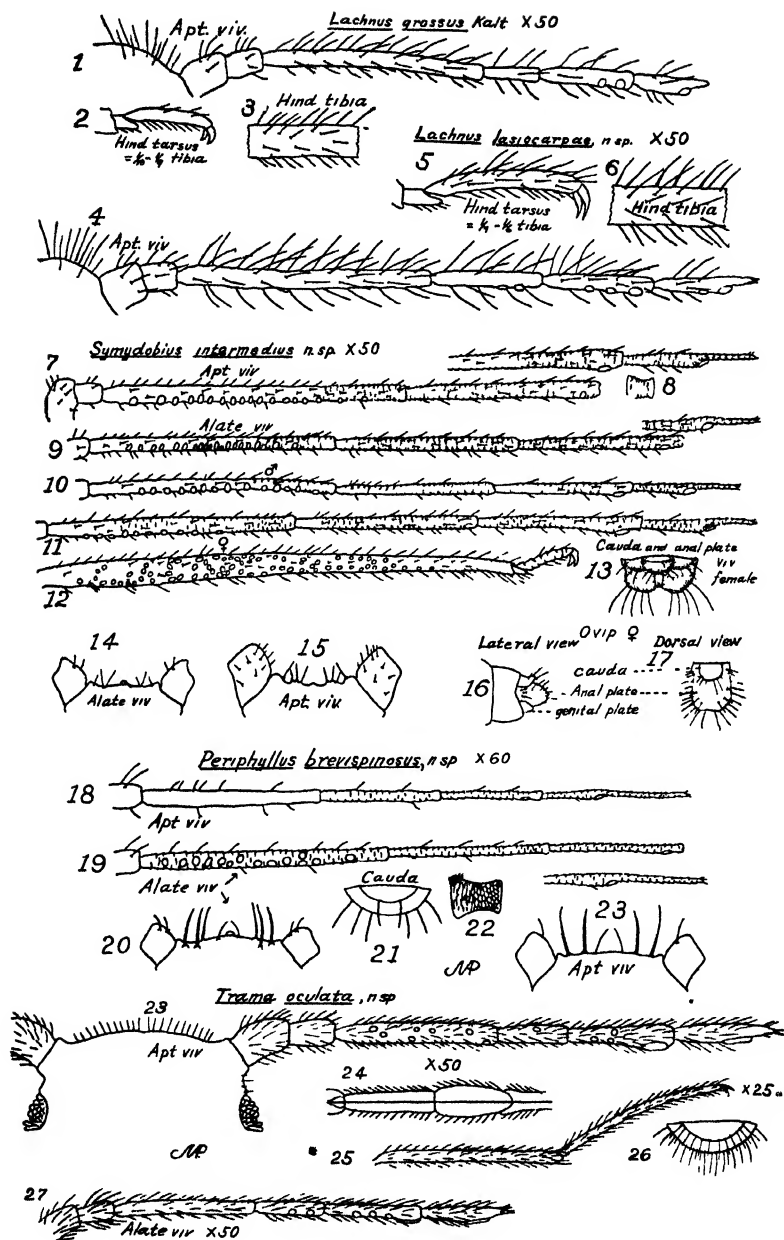 Lachnus grossus Kalt X50
Apt. viv.
1
2
Hind tarsus
3
Hind tibia
Lachnus lasiocarpae, n sp. X50
5
Hind tarsus
6
Hind tibia
4
Apt. viv
Symydobius intermedius n sp. X50
7
Apt viv
8
Alate viv
9
10
♂
11
♀
12
Cauda and anal plate
13
viv
female
14
Alate viv
15
Apt. viv.
Lateral view Ovip ♀ Dorsal view
16
17
cauda
Anal plate
genital plate
Periphyllus brevispinosus, n sp X60
18
Apt viv
19
Alate viv
20
Cauda
21
22
23
Apt viv
Trama oculata, n sp
23
Apt viv
24
X50
25
X25
26
27
Alate viv X50